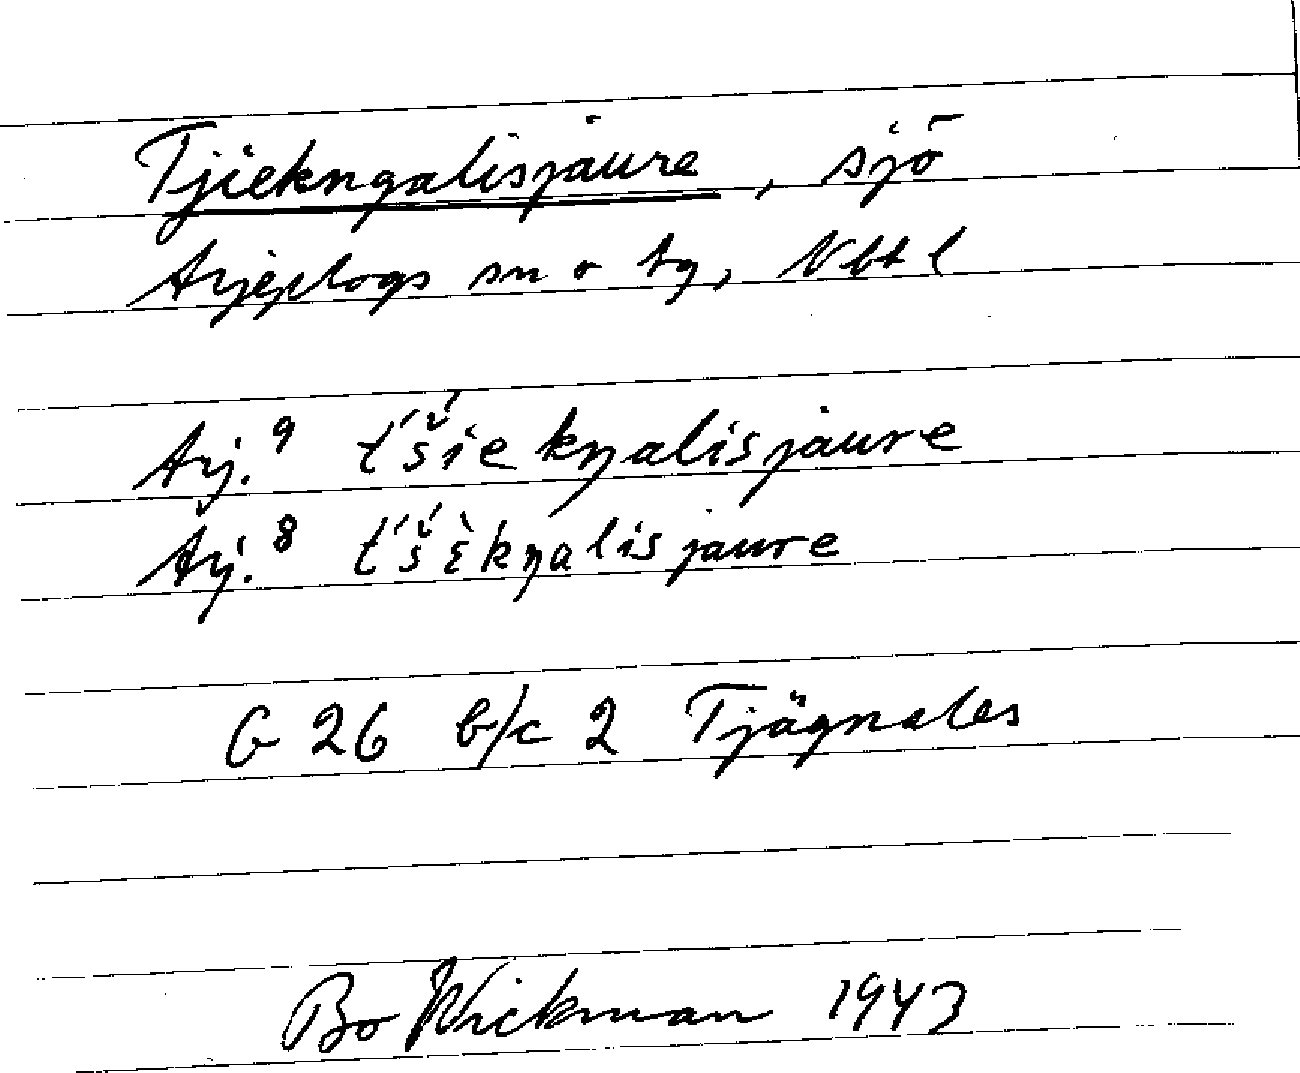 Tjiekngalisjaure, sjö
Arjeplogs sn o tg, Vbt l
Arj.⁹ t́'š́iekŋalisjaure
Arj.⁸ t́'š́ièkŋalisjaure
G 26 b/c 2 Tjägnales
Bo Wickman 1943